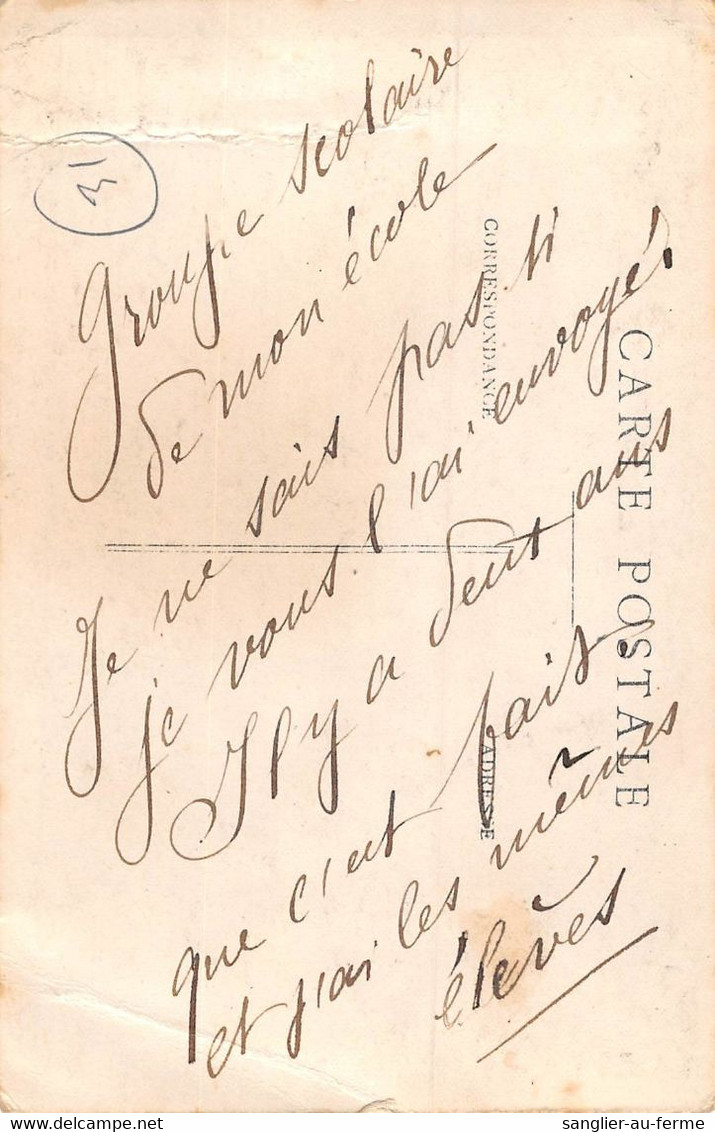 13
Groupe scolaire
de mon école
Je ne sais pas si
je vous l'ai envoyé.
Il y a deux ans
que c'est fait
et j'ai les mêmes
élèves
CARTE POSTALE
CORRESPONDANCE
ADRESSE
sanglier-au-ferme